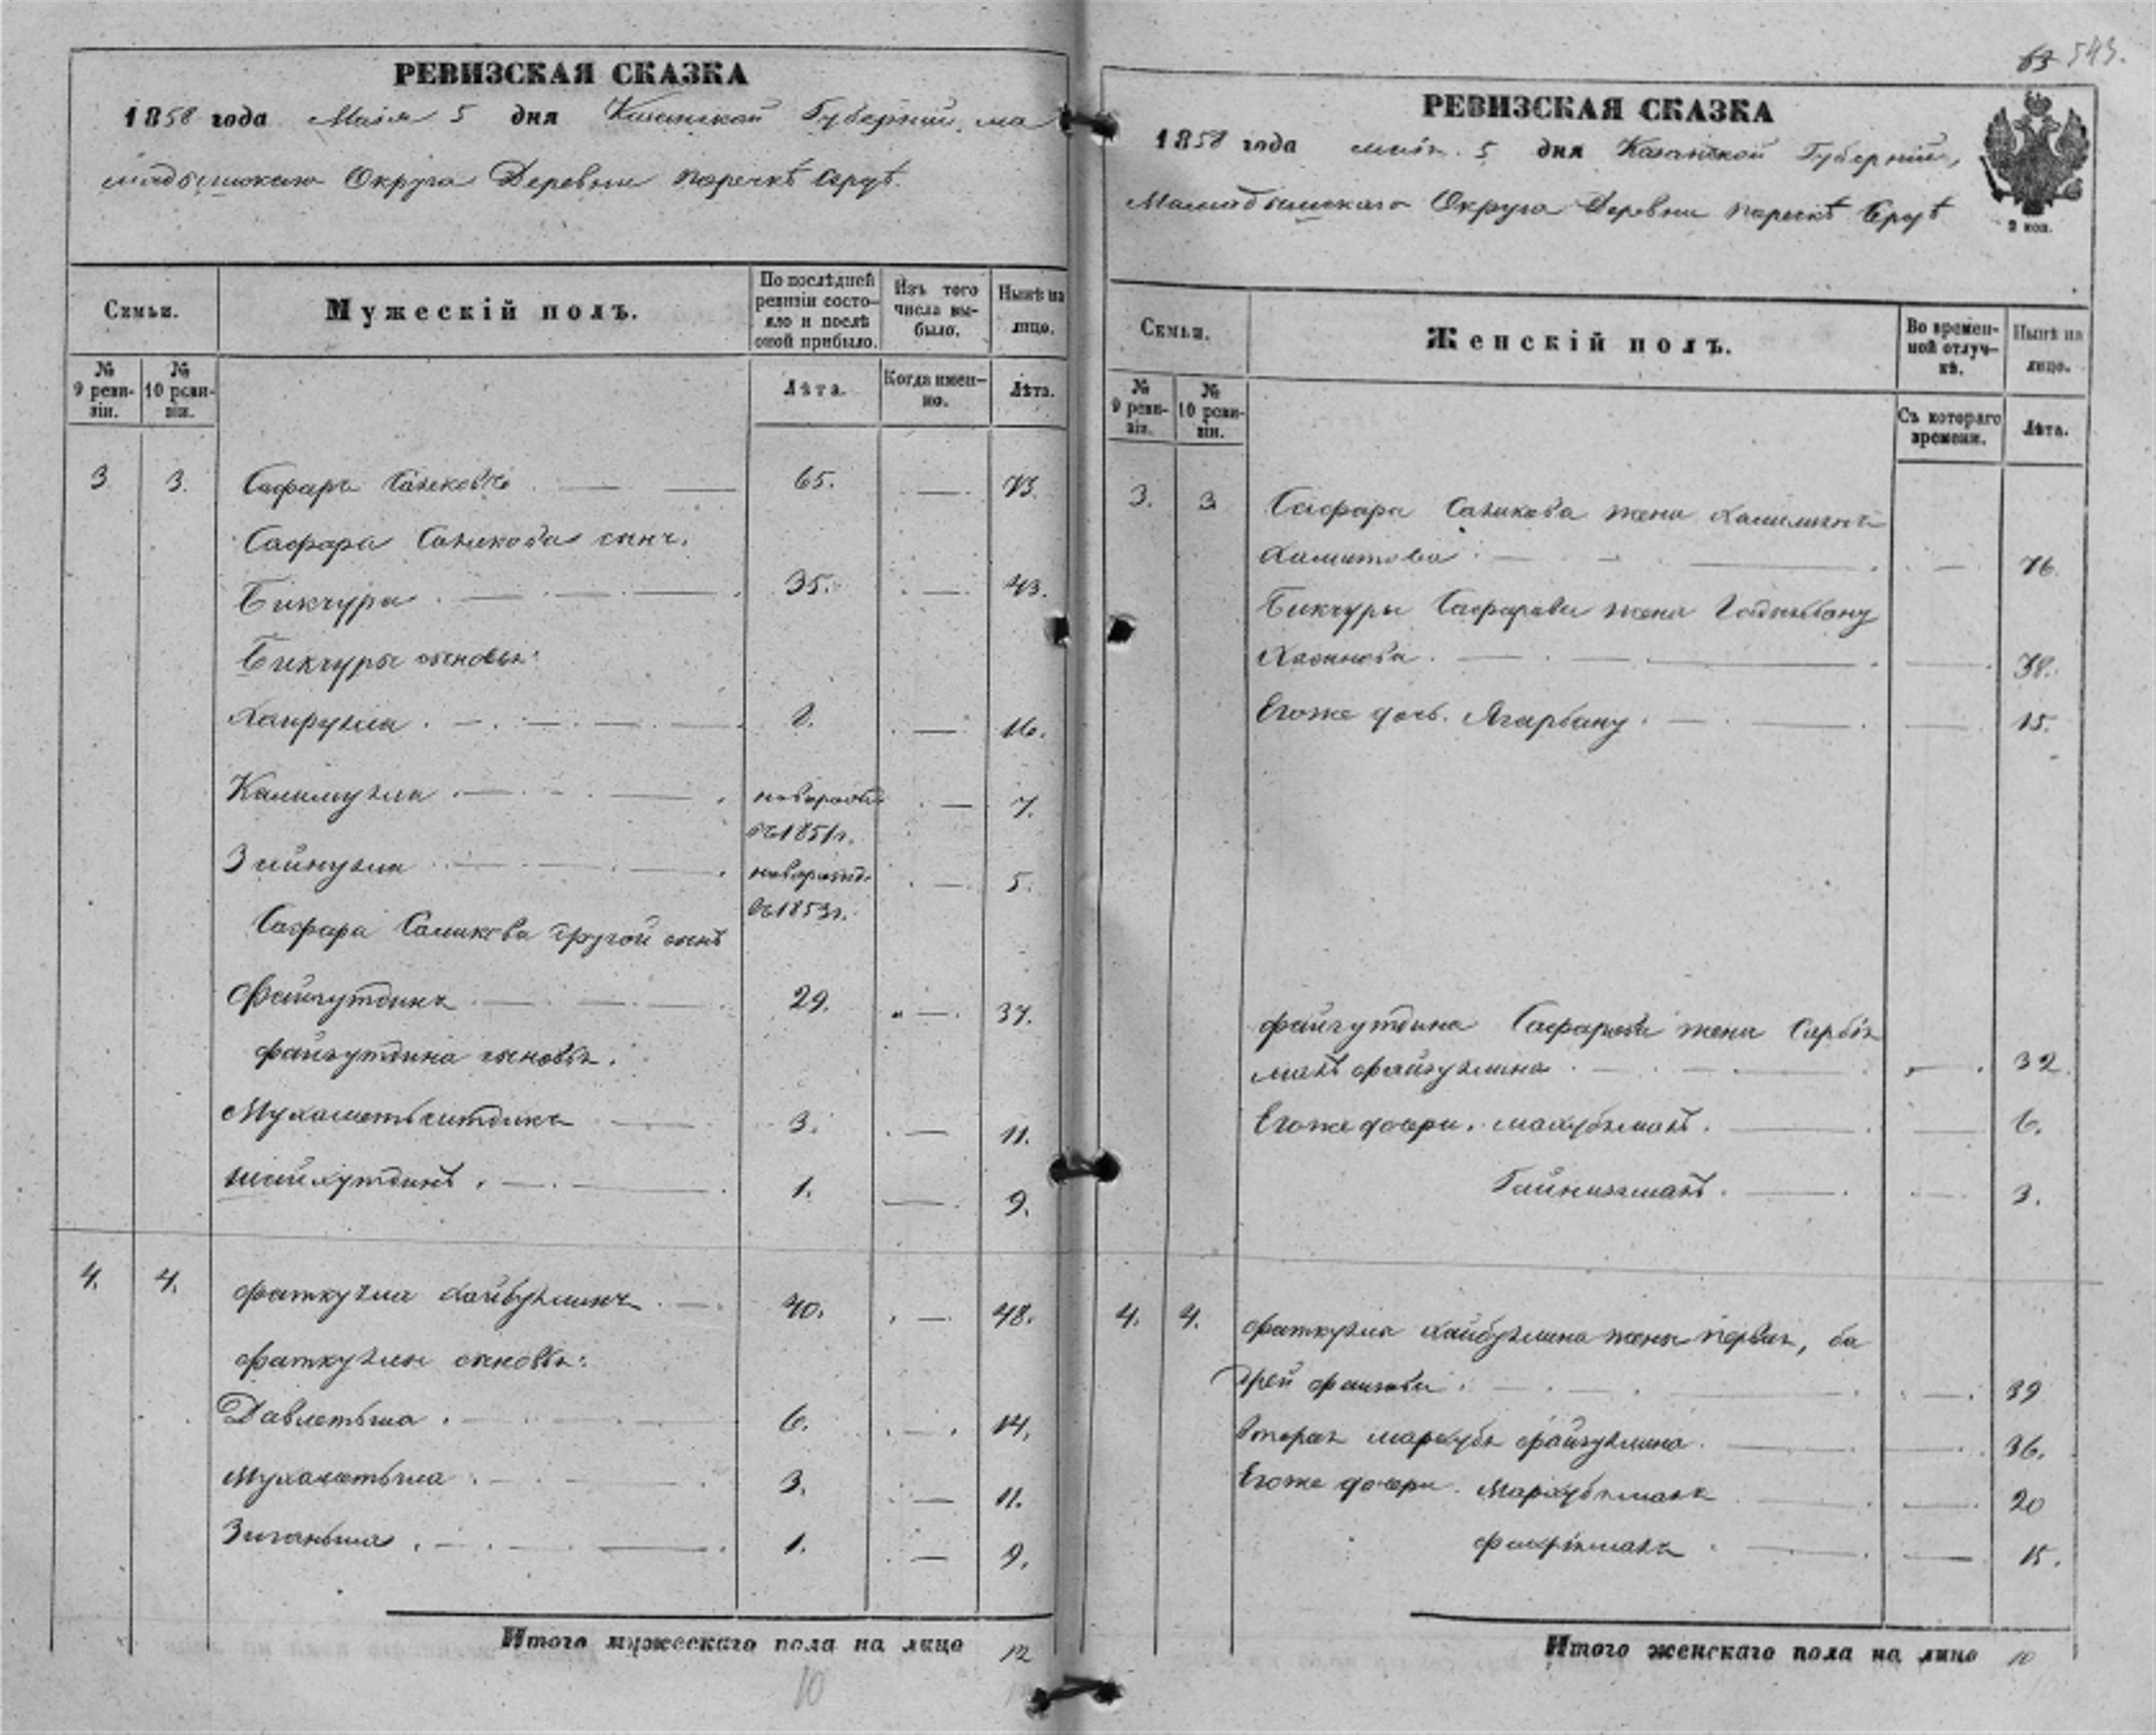 РЕВИЗСКАЯ СКАЗКА
1858 года Маія 5 дня Казанской Губерніи, ма
мадышскаго Округа Деревни
Семьи.
Мужескій полъ.
По послѣдней ревизіи состо-
яло и послѣ
оной прибыло.
Изъ того
числа вы-
было.
Нынѣ на
лицо.
№
9 реви-
зіи.
№
10 реви-
зіи.
Лѣта.
Когда имен-
но.
Лѣта.
3 3. Сафаръ Саликовъ 65. 73.
Сафара Саликова сынъ.
Бикчура 35. 43.
Бикчуры сыновья:
Хайрулла 8. 16.
Калимулла новорожд. 7.
въ 1851г.
Зайнулла новорожд. 5.
въ 1853г.
Сафара Саликова другой сынъ
Файзутдинъ 29. 37.
Файзутдина сыновья.
Мухаметьситдикъ 3. 11.
Шайхутдинъ 1. 9.
4. 4. Фаткулла Хайбуллинъ 40. 48.
Фаткуллы сыновья:
Давлетьша 6. 14.
Мухаметьша 3. 11.
Зиганьша 1. 9.
Итого мужескаго пола на лицо 12
10
543.
РЕВИЗСКАЯ СКАЗКА
1858 года маія 5 дня Казанской Губерніи,
Мамадышскаго Округа Деревни
2 коп.
Семьи.
Женскій полъ.
Во времен-
ной отлуч-
кѣ.
Нынѣ на
лицо.
№
9 реви-
зіи.
№
10 реви-
зіи.
Съ котораго
времени.
Лѣта.
3. 3 Сафара Саликова жена
Хамитова 76.
Бикчуры Сафарова жена
Хасанова 38.
Его же дочь. Ягарбану 15.
Файзутдина Сафарова жена Сарбія
малъ Файзуллина 32.
Его же дочери. Махубзямалъ. 6.
Гайнизямалъ. 3.
4. 4. Фаткуллы Хайбуллина жены первая, ба
39
Вторая Мархуба Файзуллина 36.
Его же дочери. 20
15.
Итого женскаго пола на лицо 10